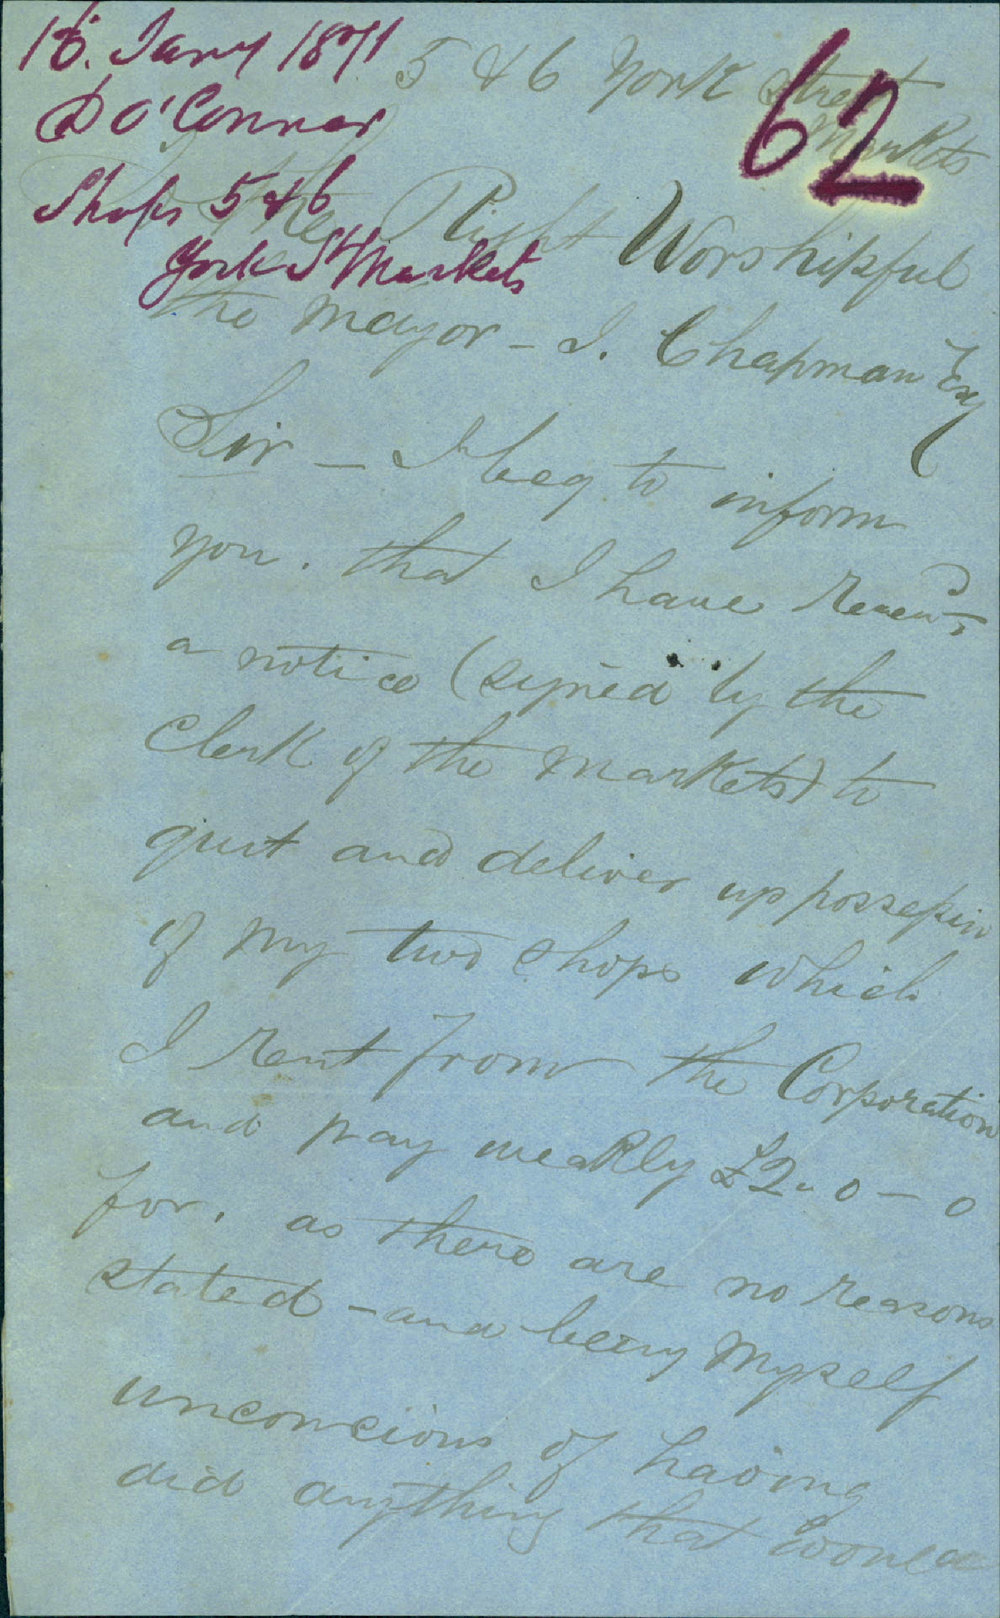 16. Jany 1871
D O'Connor
Shops 5 & 6
York St Markets
62
5 & 6 York Street
Markets
To the Right Worshipful
the Mayor - I. Chapman Esq
Sir - I beg to inform
you. that I have Receivd
a notice (signed by the
Clerk of the Markets) to
quit and deliver up possession
of my two shops which
I Rent from the Corporation
and pay weakly £2-0-0
for. as there are no Reasons
stated - and being Myself
unconcious of having
did anything that would